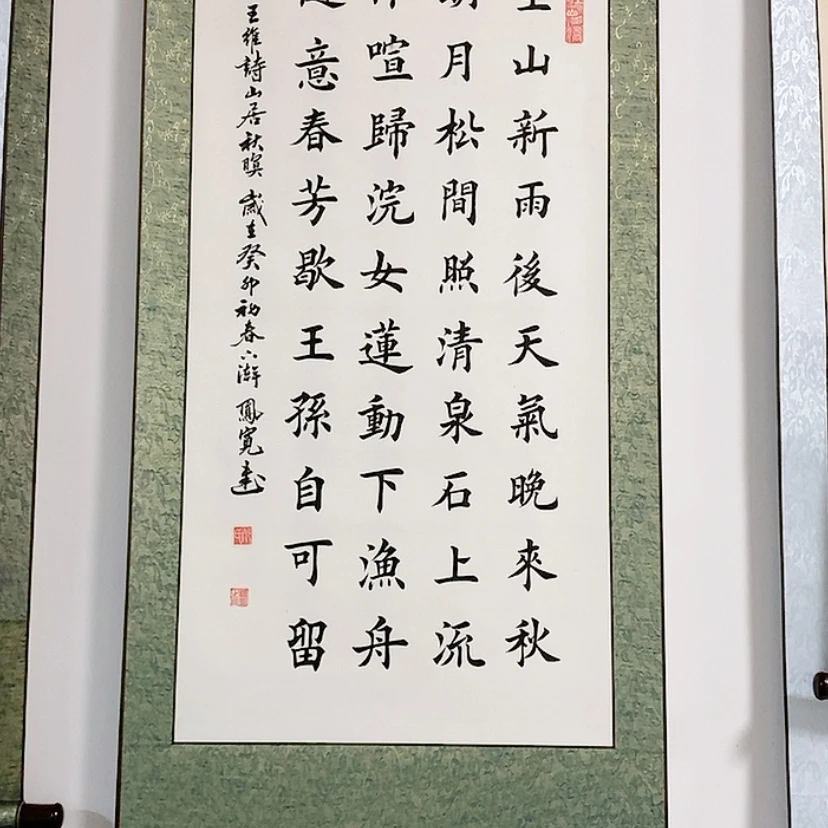 山新雨後天氣晚來秋
月松間照清泉石上流
喧歸浣女蓮動下漁舟
意春芳歇王孫自可留
王維詩山居秋暝 歲在癸卯初春 鳳寬書